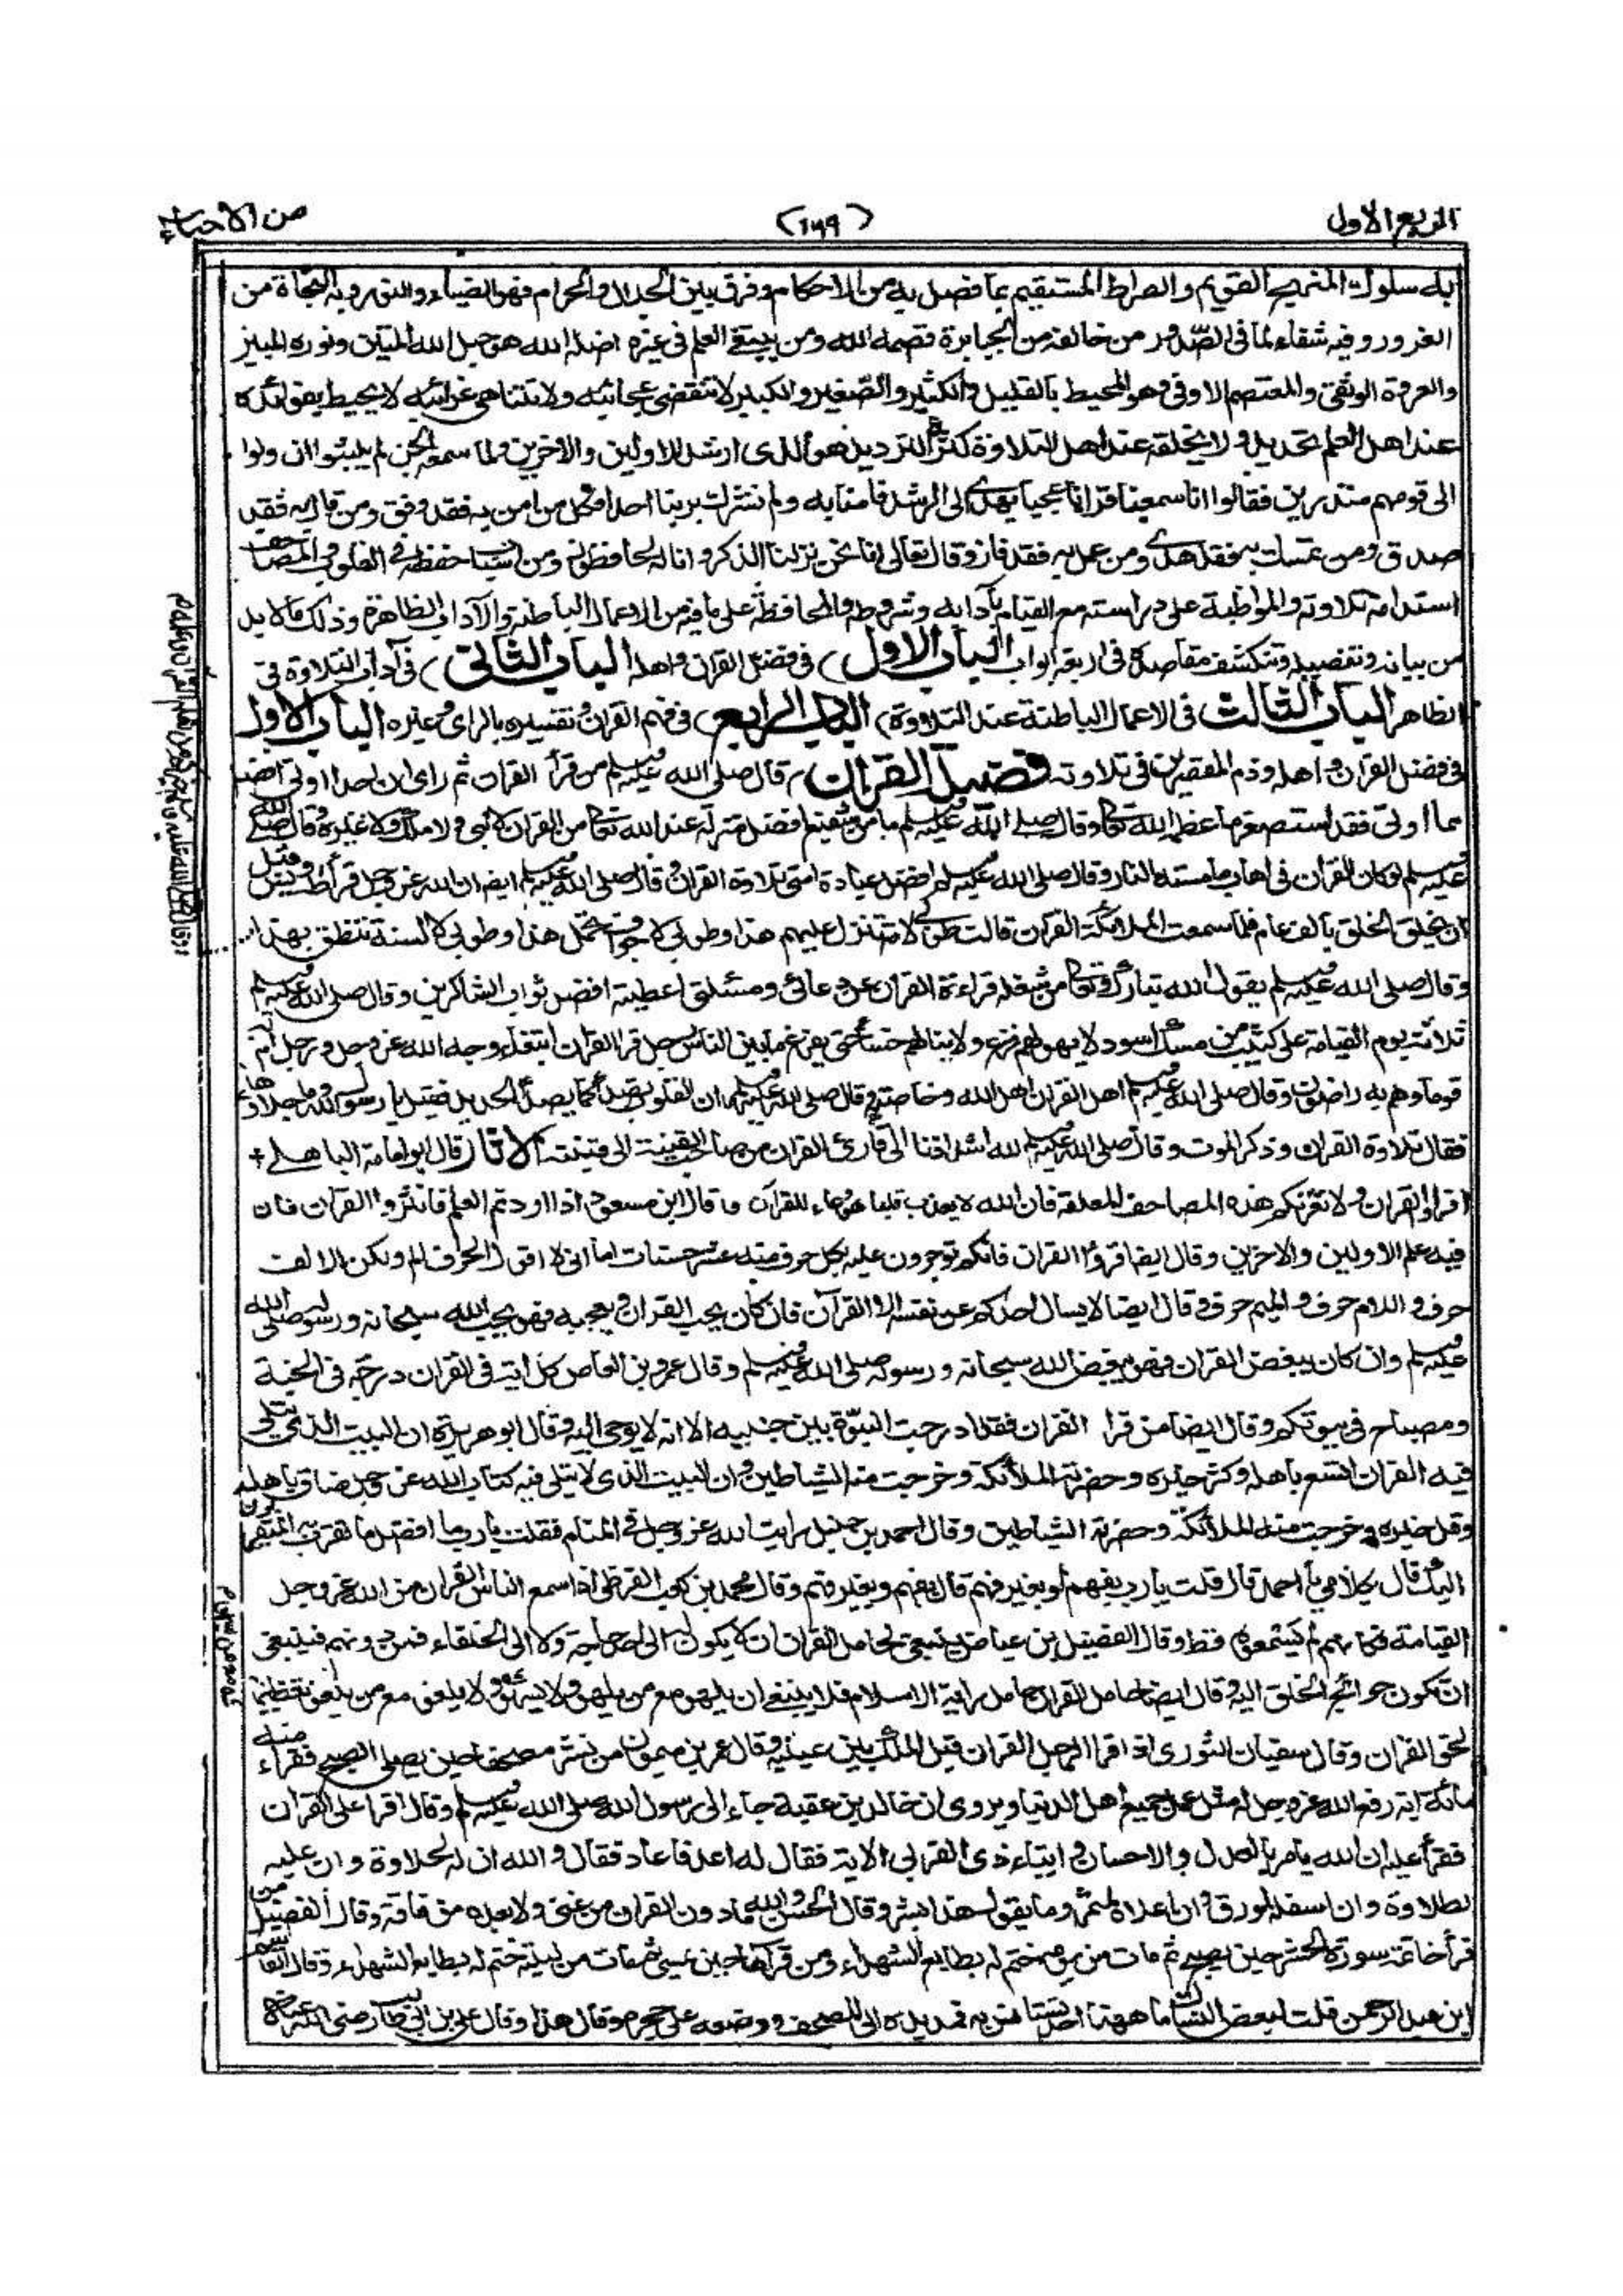 الربع الاول
(١٦٩)
من الاحياء
به سلوك المنهج القويم والصراط المستقيم بما فصل به من الاحكام وفرق بين الحلال والحرام فهو الضياء والنور وبه النجاة من
الغرور وفيه شفاء لما فى الصدور من خالفه من الجبابرة قصمه الله ومن يبتغ العلم فى غيره اضله الله هو حبل الله المتين ونوره المبين
والعروة الوثقى والمعتصم الاوفى وهو المحيط بالقليل والكثير والصغير والكبير لا تنقضى عجائبه ولا تتناهى غرائبه لا يحيط بفوائده
عند اهل العلم تحديد ولا يخلقه عند اهل التلاوة كثرة الترديد هو الذى ارشد الاولين والاخرين ولما سمعه الجن لم يلبثوا ان ولوا
الى قومهم منذرين فقالوا انا سمعنا قرانا عجبا يهدى الى الرشد فامنا به ولم نشرك بربنا احدا فكل من امن به فقد وفق ومن قال به فقد
صدق ومن تمسك به فقد هدى ومن عمل به فقد فاز وقال تعالى انا نحن نزلنا الذكر وانا له لحافظون ومن اسباب حفظه فى القلوب والمصاحف
استدامة تلاوته والمواظبة على دراسته مع القيام بآدابه وشروطه والمحافظة على ما فيه من الاعمال الباطنة والآداب الظاهرة وذلك مما لا بد
من بيانه وتفصيله وتنكشف مقاصده فى اربعة ابواب الباب الاول) فى فضل القران واهله الباب الثانى) فى آداب التلاوة فى
الظاهر الباب الثالث فى الاعمال الباطنة عند التلاوة) الباب الرابع) فى فهم القران وتفسيره بالراى وغيره الباب الاول
فى فضل القران واهله وذم المقصرين فى تلاوته فضيلة القران قال صلى الله عليه وسلم من قرأ القران ثم راى ان احدا اوتى افضل
مما اوتى فقد استصغر ما عظم الله تعالى وقال صلى الله عليه وسلم ما من شفيع افضل منزلة عند الله تعالى من القران لا نبى ولا ملك ولا غيره وقال صلى الله
عليه وسلم لو كان القران فى اهاب ما مسته النار وقال صلى الله عليه وسلم افضل عبادة امتى تلاوة القران وقال صلى الله عليه وسلم ايضا ان الله عز وجل قرأ طه ويس قبل
ان يخلق الخلق بالف عام فلما سمعت الملائكة القران قالت طوبى لامة ينزل عليهم هذا وطوبى لاجواف تحمل هذا وطوبى لالسنة تنطق بهذا
وقال صلى الله عليه وسلم يقول الله تبارك وتعالى من شغله قراءة القران عن دعائى ومسئلتى اعطيته افضل ثواب الشاكرين وقال صلى الله عليه وسلم
ثلاثة يوم القيامة على كثيب من مسك اسود لا يهولهم فزع ولا ينالهم حساب حتى يفرغ ما بين الناس رجل قرا القران ابتغاء وجه الله عز وجل ورجل ام
قوما وهم به راضون وقال صلى الله عليه وسلم اهل القران اهل الله وخاصته وقال صلى الله عليه وسلم ان القلوب تصدأ كما يصدأ الحديد فقيل يا رسول الله وما جلاؤها
فقال تلاوة القران وذكر الموت وقال صلى الله عليه وسلم لله اشد اذنا الى قارئ القران من صاحب القينة الى قينته الاثار قال ابو امامة الباهلى +
اقراؤا القران ولا تغرنكم هذه المصاحف المعلقة فان الله لا يعذب قلبا هو وعاء للقرآن وقال ابن مسعود اذا اردتم العلم فانثروا القران فان
فيه علم الاولين والاخرين وقال ايضا اقرؤا القران فانكم توجرون عليه بكل حرف منه عشر حسنات اما انى لا اقول الحرف الم ولكن الالف
حرف واللام حرف والميم حرف وقال ايضا لا يسال احدكم عن نفسه الا القرآن فان كان يحب القران ويعجبه فهو يحب الله سبحانه ورسوله صلى الله
عليه وسلم وان كان يبغض القران فهو يبغض الله سبحانه ورسوله صلى الله عليه وسلم وقال عمرو بن العاص كل اية فى القران درجة فى الجنة
ومصباح فى بيوتكم وقال ايضا من قرا القران فقد ادرجت النبوة بين جنبيه الا انه لا يوحى اليه وقال ابو هريرة ان البيت الذى يتلى
فيه القران اتسع باهله وكثر خيره وحضرته الملائكة وخرجت منه الشياطين وان البيت الذى لا يتلى فيه كتاب الله عز وجل ضاق باهله
وقل خيره وخرجت منه الملائكة وحضرته الشياطين وقال احمد بن حنبل رايت الله عز وجل فى المنام فقلت يا رب ما افضل ما تقرب به المتقربون
اليك قال بكلامى يا احمد قال قلت يا رب بفهم او بغير فهم قال بفهم وبغير فهم وقال محمد بن كعب القرظى اذا سمع الناس القران من الله عز وجل
القيامة فكانهم لم يسمعوه قط وقال الفضيل بن عياض ينبغى لحامل القران ان لا يكون له الى احد حاجة ولا الى الخلفاء فمن دونهم فينبغى
ان تكون حوائج الخلق اليه وقال ايضا حامل القران حامل راية الاسلام فلا ينبغى ان يلهو مع من يلهو ولا يسهو ولا يلغو مع من يلغو تعظيما
لحق القران وقال سفيان الثورى اذا قرا الرجل القران قبل الملك بين عينيه وقال عمرو بن ميمون من نشر مصحفا حين يصلى الصبح فقراء منه
مائة اية رفع الله عز وجل له مثل عمل جميع اهل الدنيا ويروى ان خالد بن عقبة جاء الى رسول الله صلى الله عليه وسلم وقال اقرا على القران
فقرأ عليه ان الله يامر بالعدل والاحسان وايتاء ذى القربى الاية فقال له اعد فاعاد فقال والله ان له لحلاوة وان عليه
لطلاوة وان اسفله لمورق وان اعلاه لمثمر وما يقول هذا بشر وقال الحسن والله ما دون القران من غنى ولا بعده من فاقة وقال الفضيل من
قرأ خاتمة سورة الحشر حين يصبح ثم مات من يومه ختم له بطابع الشهداء ومن قرأها حين يمسى ثم مات من ليلته ختم له بطابع الشهداء وقال القاسم
ابن عبد الرحمن قلت لبعض النساك ما ههنا احد تستانس به فمد يده الى المصحف ووضعه على حجره وقال هذا وقال على بن ابى طالب رضى الله عنه